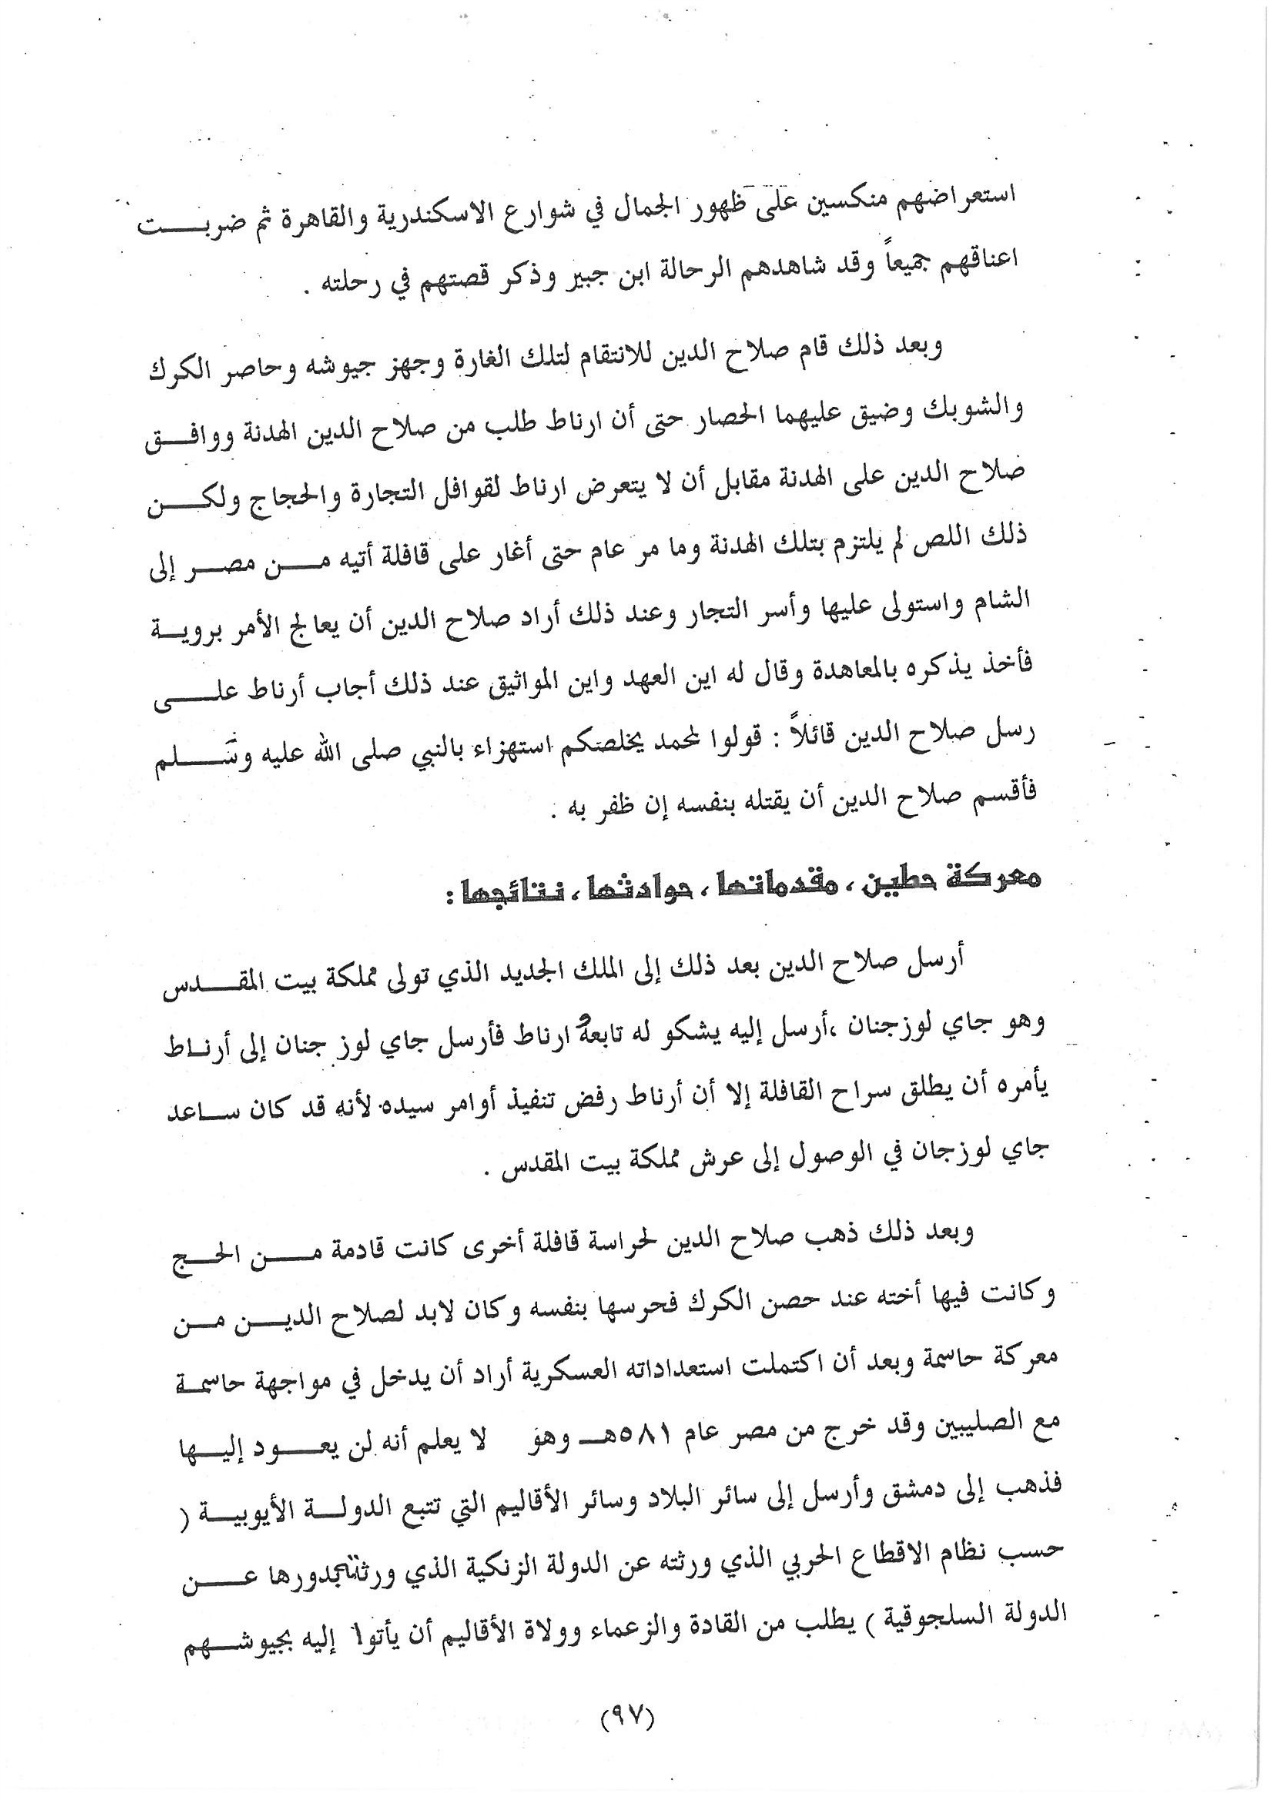 استعراضهم منكسين على ظهور الجمال في شوارع الاسكندرية والقاهرة ثم ضربت
اعناقهم جميعاً وقد شاهدهم الرحالة ابن جبير وذكر قصتهم في رحلته .
وبعد ذلك قام صلاح الدين للانتقام لتلك الغارة وجهز جيوشه وحاصر الكرك
والشوبك وضيق عليهما الحصار حتى أن ارناط طلب من صلاح الدين الهدنة ووافق
صلاح الدين على الهدنة مقابل أن لا يتعرض ارناط لقوافل التجارة والحجاج ولكن
ذلك اللص لم يلتزم بتلك الهدنة وما مر عام حتى أغار على قافلة أتيه من مصر إلى
الشام واستولى عليها وأسر التجار وعند ذلك أراد صلاح الدين أن يعالج الأمر بروية
فأخذ يذكره بالمعاهدة وقال له اين العهد واين المواثيق عند ذلك أجاب أرناط على
رسل صلاح الدين قائلاً : قولوا لمحمد يخلصكم استهزاء بالنبي صلى الله عليه وسلم
فأقسم صلاح الدين أن يقتله بنفسه إن ظفر به .
معركة حطين ، مقدماتها ، حوادثها ، نتائجها :
أرسل صلاح الدين بعد ذلك إلى الملك الجديد الذي تولى مملكة بيت المقدس
وهو جاي لوزجنان ،أرسل إليه يشكو له تابعه ارناط فأرسل جاي لوز جنان إلى أرناط
يأمره أن يطلق سراح القافلة إلا أن أرناط رفض تنفيذ أوامر سيده لأنه قد كان ساعد
جاي لوزجان في الوصول إلى عرش مملكة بيت المقدس .
وبعد ذلك ذهب صلاح الدين لحراسة قافلة أخرى كانت قادمة من الحج
وكانت فيها أخته عند حصن الكرك فحرسها بنفسه وكان لابد لصلاح الدين من
معركة حاسمة وبعد أن اكتملت استعداداته العسكرية أراد أن يدخل في مواجهة حاسمة
مع الصليبين وقد خرج من مصر عام ٥٨١هـ وهو لا يعلم أنه لن يعود إليها
فذهب إلى دمشق وأرسل إلى سائر البلاد وسائر الأقاليم التي تتبع الدولة الأيوبية (
حسب نظام الاقطاع الحربي الذي ورثته عن الدولة الزنكية الذي ورثته بدورها عن
الدولة السلجوقية ) يطلب من القادة والزعماء وولاة الأقاليم أن يأتوا إليه بجيوشهم
(٩٧)